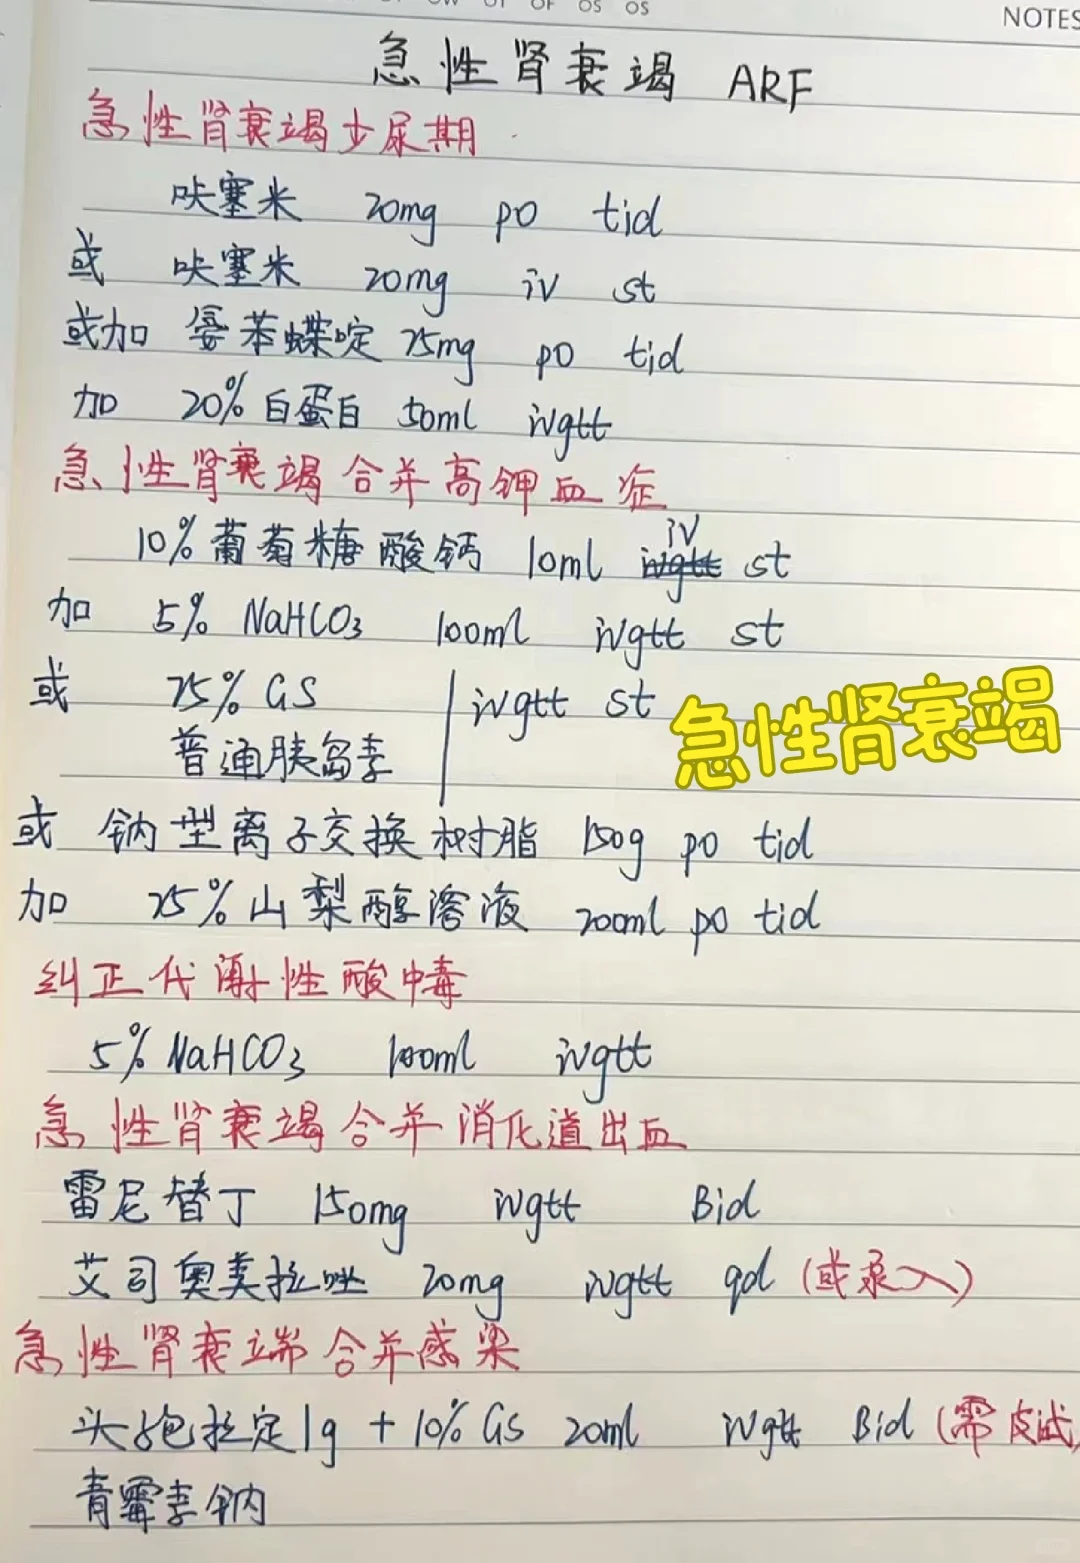 NOTES
急性肾衰竭 ARF
急性肾衰竭少尿期
呋塞米 20mg po tid
或 呋塞米 20mg iv st
或加 氨苯蝶啶 25mg po tid
加 20%白蛋白 50ml ivgtt
急性肾衰竭合并高钾血症
iv
10%葡萄糖酸钙 10ml ivgtt st
加 5% NaHCO3 100ml ivgtt st
或 25% GS ivgtt st
急性肾衰竭
普通胰岛素
或 钠型离子交换树脂 150g po tid
加 25%山梨醇溶液 200ml po tid
纠正代谢性酸中毒
5% NaHCO3 100ml ivgtt
急性肾衰竭合并消化道出血
雷尼替丁 150mg ivgtt Bid
艾司奥美拉唑 20mg ivgtt qd (或泵入)
急性肾衰竭合并感染
头孢拉定1g + 10% GS 20ml ivgtt Bid (需皮试
青霉素钠